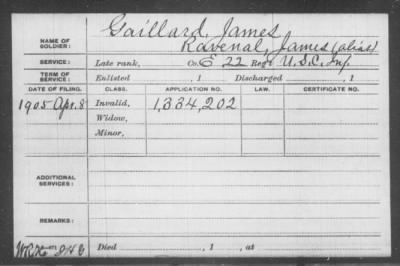 NAME OF SOLDIER: Gaillard, James
Ravenal, James (alias)
SERVICE: Late rank, Co. E 22 Reg't U.S.C. Inf
TERM OF SERVICE: Enlisted , 1 Discharged , 1
DATE OF FILING. CLASS. APPLICATION NO. LAW. CERTIFICATE NO.
1905 Apr. 8 Invalid, 1,334,202
Widow,
Minor,
ADDITIONAL SERVICES:
REMARKS:
Died , 1 , at